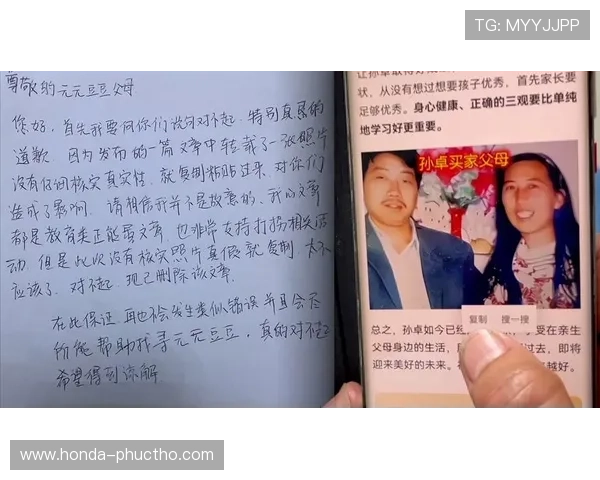 TG: MYYJJPP
尊敬的元元豆豆父母
您好,首先我要向你们说句对不起,特别真恳的
道歉 因为发布的一篇文章中转载了一张照片
没有仔细核实真实性,就复制粘贴过来,对你们
造成了影响. 请相信我并不是故意的,我的文章
都是教育类正能量文章,也非常支持打拐相关活
动,但是此次没有核实照片真假就复制,太不
应该了,对不起,现已删除该文章.
在此保证,再也不会发生类似错误并且会尽
所能帮助找寻元元豆豆,真的对不起
希望得到谅解
让孙卓取得好成
状,从没有想过想要孩子优秀,首先家长要
足够优秀。身心健康、正确的三观要比单纯
地学习好更重要。
孙卓买家父母
复制 搜一搜
总之,孙卓如今已经 享受在亲生
父母身边的生活, 过去,即将
迎来美好的未来。 越好。
www.honda-phuctho.com